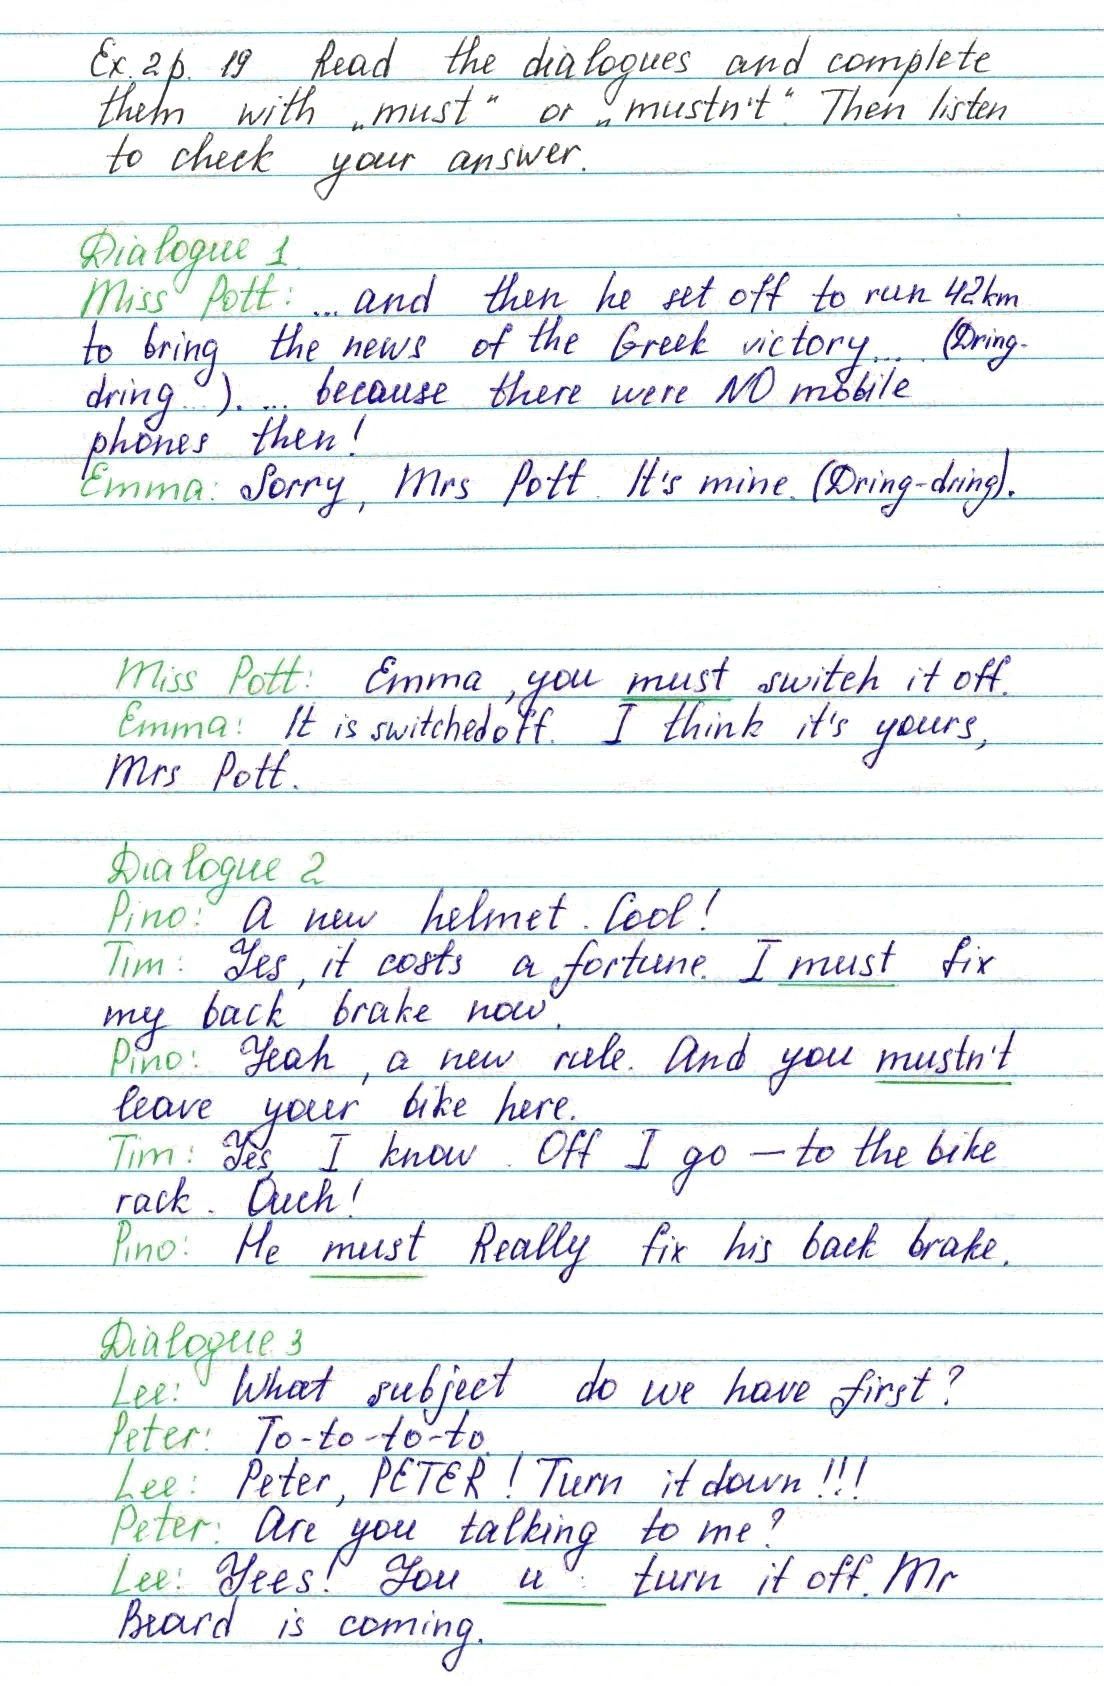 Ex. 2 p. 19 Read the dialogues and complete
them with „must“ or „mustn't“. Then listen
to check your answer.
Dialogue 1
Miss Pott: ... and then he set off to run 42km
to bring the news of the Greek victory... (Dring-
dring...). ... because there were NO mobile
phones then!
Emma: Sorry, Mrs Pott. It's mine. (Dring-dring).
Miss Pott: Emma, you must switch it off.
Emma: It is switched off. I think it's yours,
Mrs Pott.
Dialogue 2
Pino: A new helmet. Cool!
Tim: Yes, it costs a fortune. I must fix
my back brake now.
Pino: Yeah, a new rule. And you mustn't
leave your bike here.
Tim: Yes, I know. Off I go – to the bike
rack. Ouch!
Pino: He must Really fix his back brake.
Dialogue 3
Lee: What subject do we have first?
Peter: To-to-to-to.
Lee: Peter, PETER! Turn it down!!!
Peter: Are you talking to me?
Lee: Yees! You turn it off. Mr
Beard is coming.